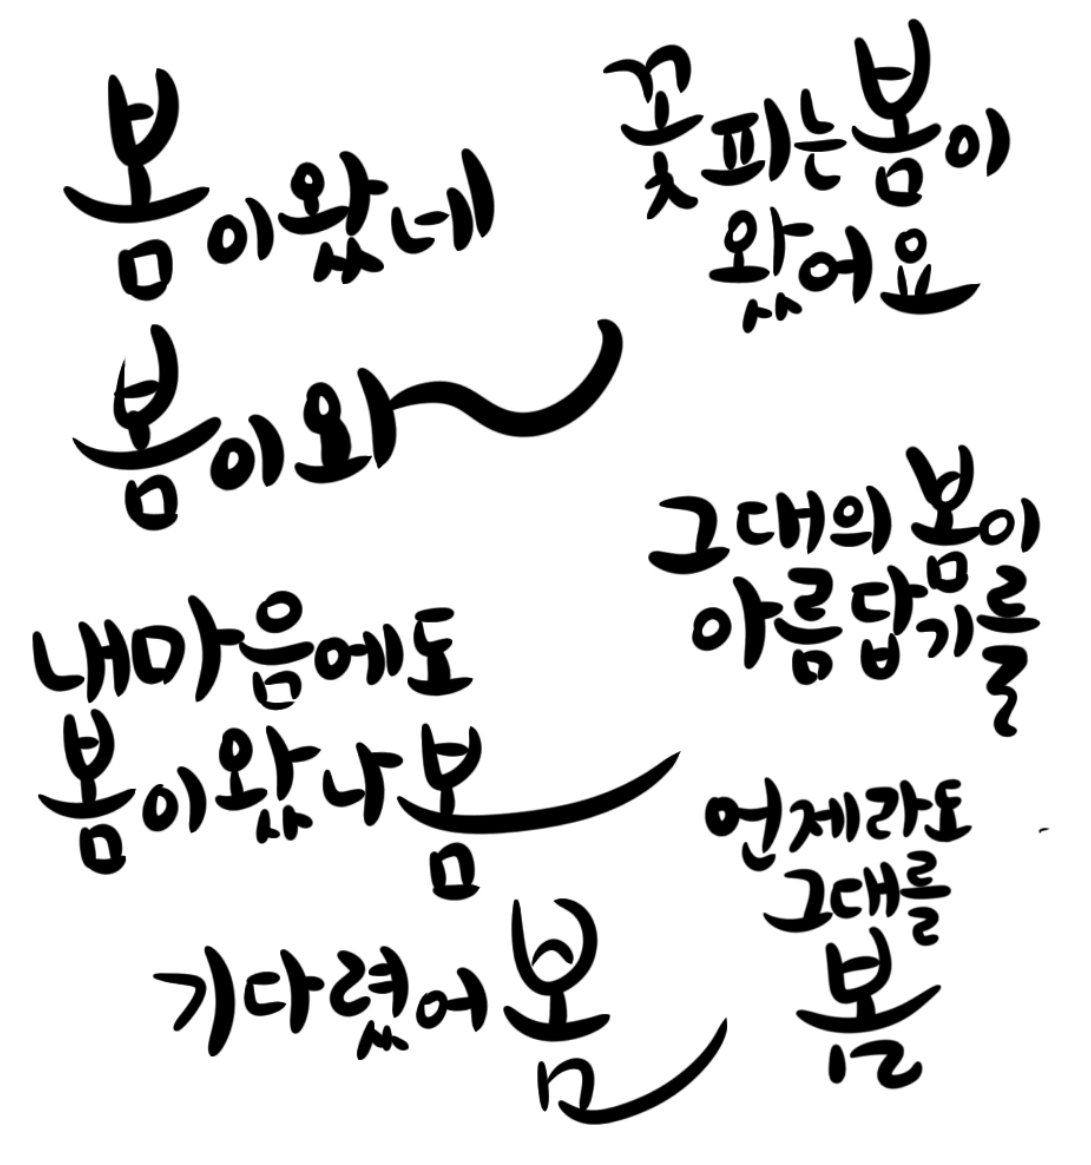 봄이왔네
꽃피는봄이
왔어요
봄이와
그대의봄이
아름답기를
내마음에도
봄이왔나봄
언제라도
그대를
봄
기다렸어봄